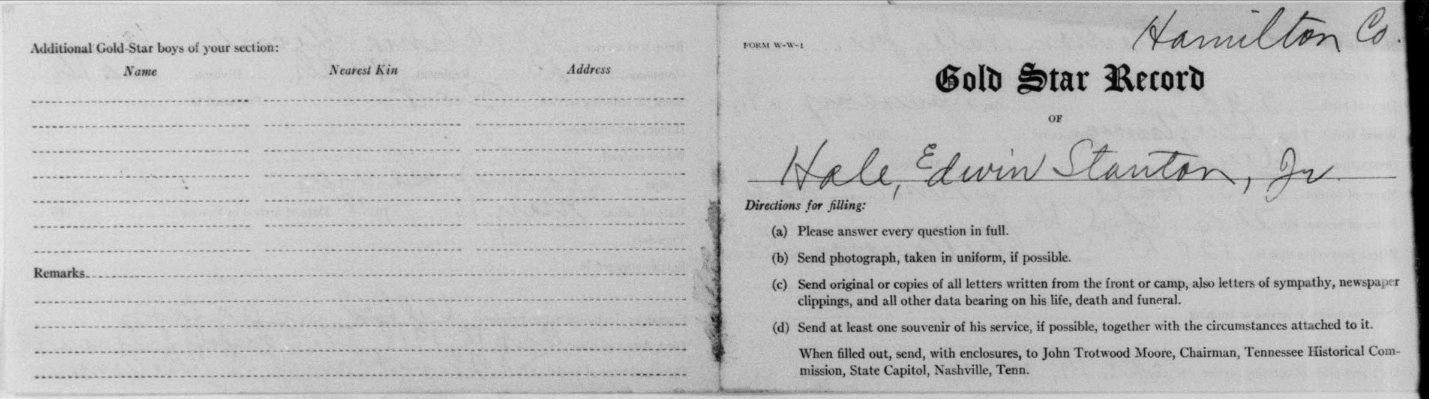 Additional Gold Star boys of your section:
Name Nearest Kin Address
Remarks
FORM W-W-1
Hamilton Co.
Gold Star Record
OF
Hale, Edwin Stanton, Jr.
Directions for filling:
(a) Please answer every question in full.
(b) Send photograph, taken in uniform, if possible.
(c) Send original or copies of all letters written from the front or camp, also letters of sympathy, newspaper
clippings, and all other data bearing on his life, death and funeral.
(d) Send at least one souvenir of his service, if possible, together with the circumstances attached to it.
When filled out, send, with enclosures, to John Trotwood Moore, Chairman, Tennessee Historical Com-
mission, State Capitol, Nashville, Tenn.